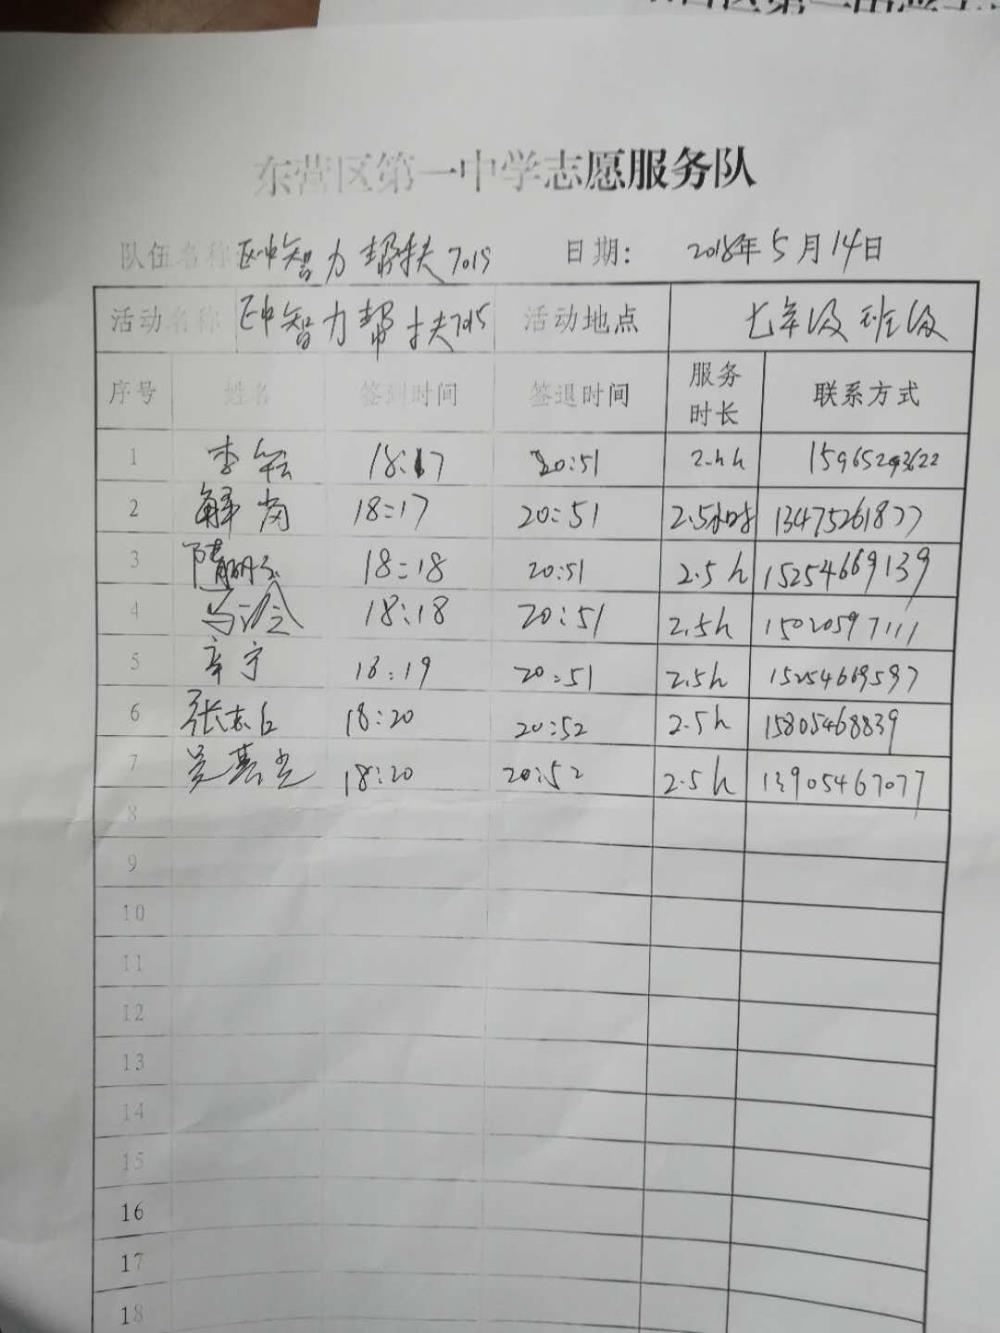 东营区第一中学志愿服务队
队伍名称 区中智力帮扶7015 日期: 2018年5月14日
活动名称 区中智力帮扶7015 活动地点 七年级班级
序号 姓名 签到时间 签退时间 服务时长 联系方式
1 李 18:17 20:51 15965293622
2 解岗 18:17 20:51 2.5小时 13475261877
3 隋 18:18 20:51 2.5h 15254669139
4 马 18:18 20:51 2.5h 15020597111
5 辛宁 18:19 20:51 2.5h 15254669597
6 张志 18:20 20:52 2.5h 15805468839
7 吴基光 18:20 20:52 2.5h 13905467077
8
9
10
11
12
13
14
15
16
17
18